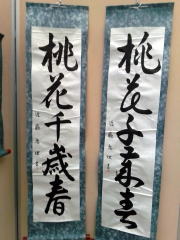 桃花千歳春
桃花千歳春